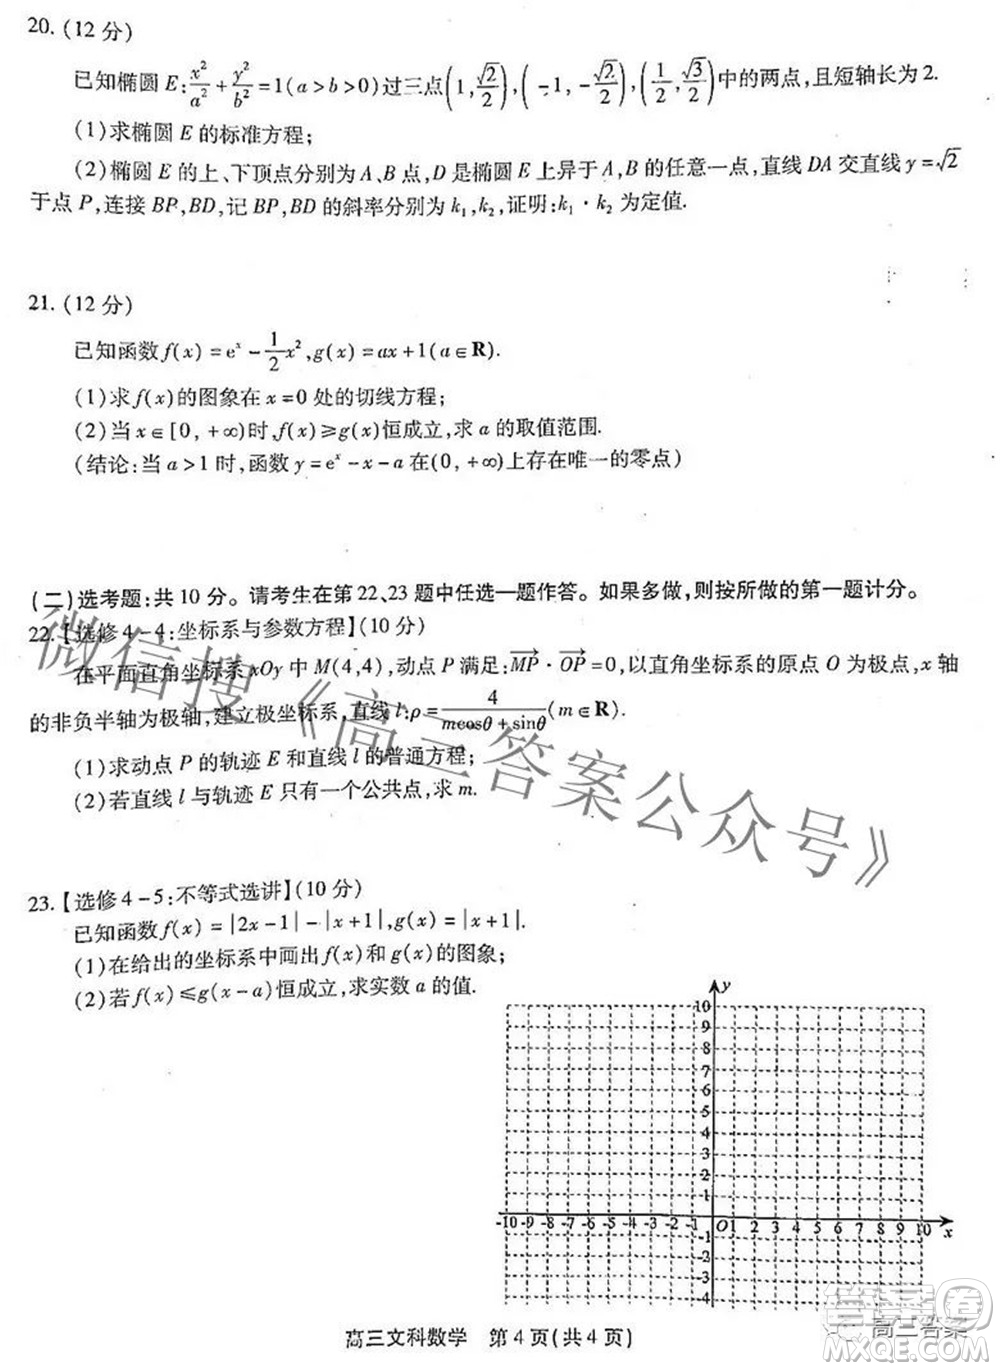 20. (12 分)
已知椭圆 E:x²/a²+y²/b²=1(a>b>0)过三点(1,√2/2),(-1,-√2/2),(1/2,√3/2)中的两点,且短轴长为 2.
(1)求椭圆 E 的标准方程;
(2)椭圆 E 的上、下顶点分别为 A、B 点,D 是椭圆 E 上异于 A,B 的任意一点,直线 DA 交直线 y=√2
于点 P,连接 BP,BD,记 BP,BD 的斜率分别为 k₁,k₂,证明:k₁·k₂ 为定值.
21. (12 分)
已知函数 f(x)=eˣ-1/2x²,g(x)=ax+1(a∈R).
(1)求 f(x)的图象在 x=0 处的切线方程;
(2)当 x∈[0,+∞)时,f(x)≥g(x)恒成立,求 a 的取值范围.
(结论:当 a>1 时,函数 y=eˣ-x-a 在(0,+∞)上存在唯一的零点)
(二)选考题:共 10 分。请考生在第 22、23 题中任选一题作答。如果多做,则按所做的第一题计分。
22.【选修 4-4:坐标系与参数方程】(10 分)
在平面直角坐标系 xOy 中 M(4,4),动点 P 满足:MP→·OP→=0,以直角坐标系的原点 O 为极点,x 轴
的非负半轴为极轴,建立极坐标系,直线 l:ρ=4/(mcosθ+sinθ)(m∈R).
(1)求动点 P 的轨迹 E 和直线 l 的普通方程;
(2)若直线 l 与轨迹 E 只有一个公共点,求 m.
微信搜《高三答案公众号》
23.【选修 4-5:不等式选讲】(10 分)
已知函数 f(x)=|2x-1|-|x+1|,g(x)=|x+1|.
(1)在给出的坐标系中画出 f(x)和 g(x)的图象;
(2)若 f(x)≤g(x-a)恒成立,求实数 a 的值.
y
10
9
8
7
6
5
4
3
2
1
-10 -9 -8 -7 -6 -5 -4 -3 -2 -1 O 1 2 3 4 5 6 7 8 9 10 x
-1
-2
-3
-4
高三文科数学 第 4 页(共 4 页)
高三答案
MXQE.COM